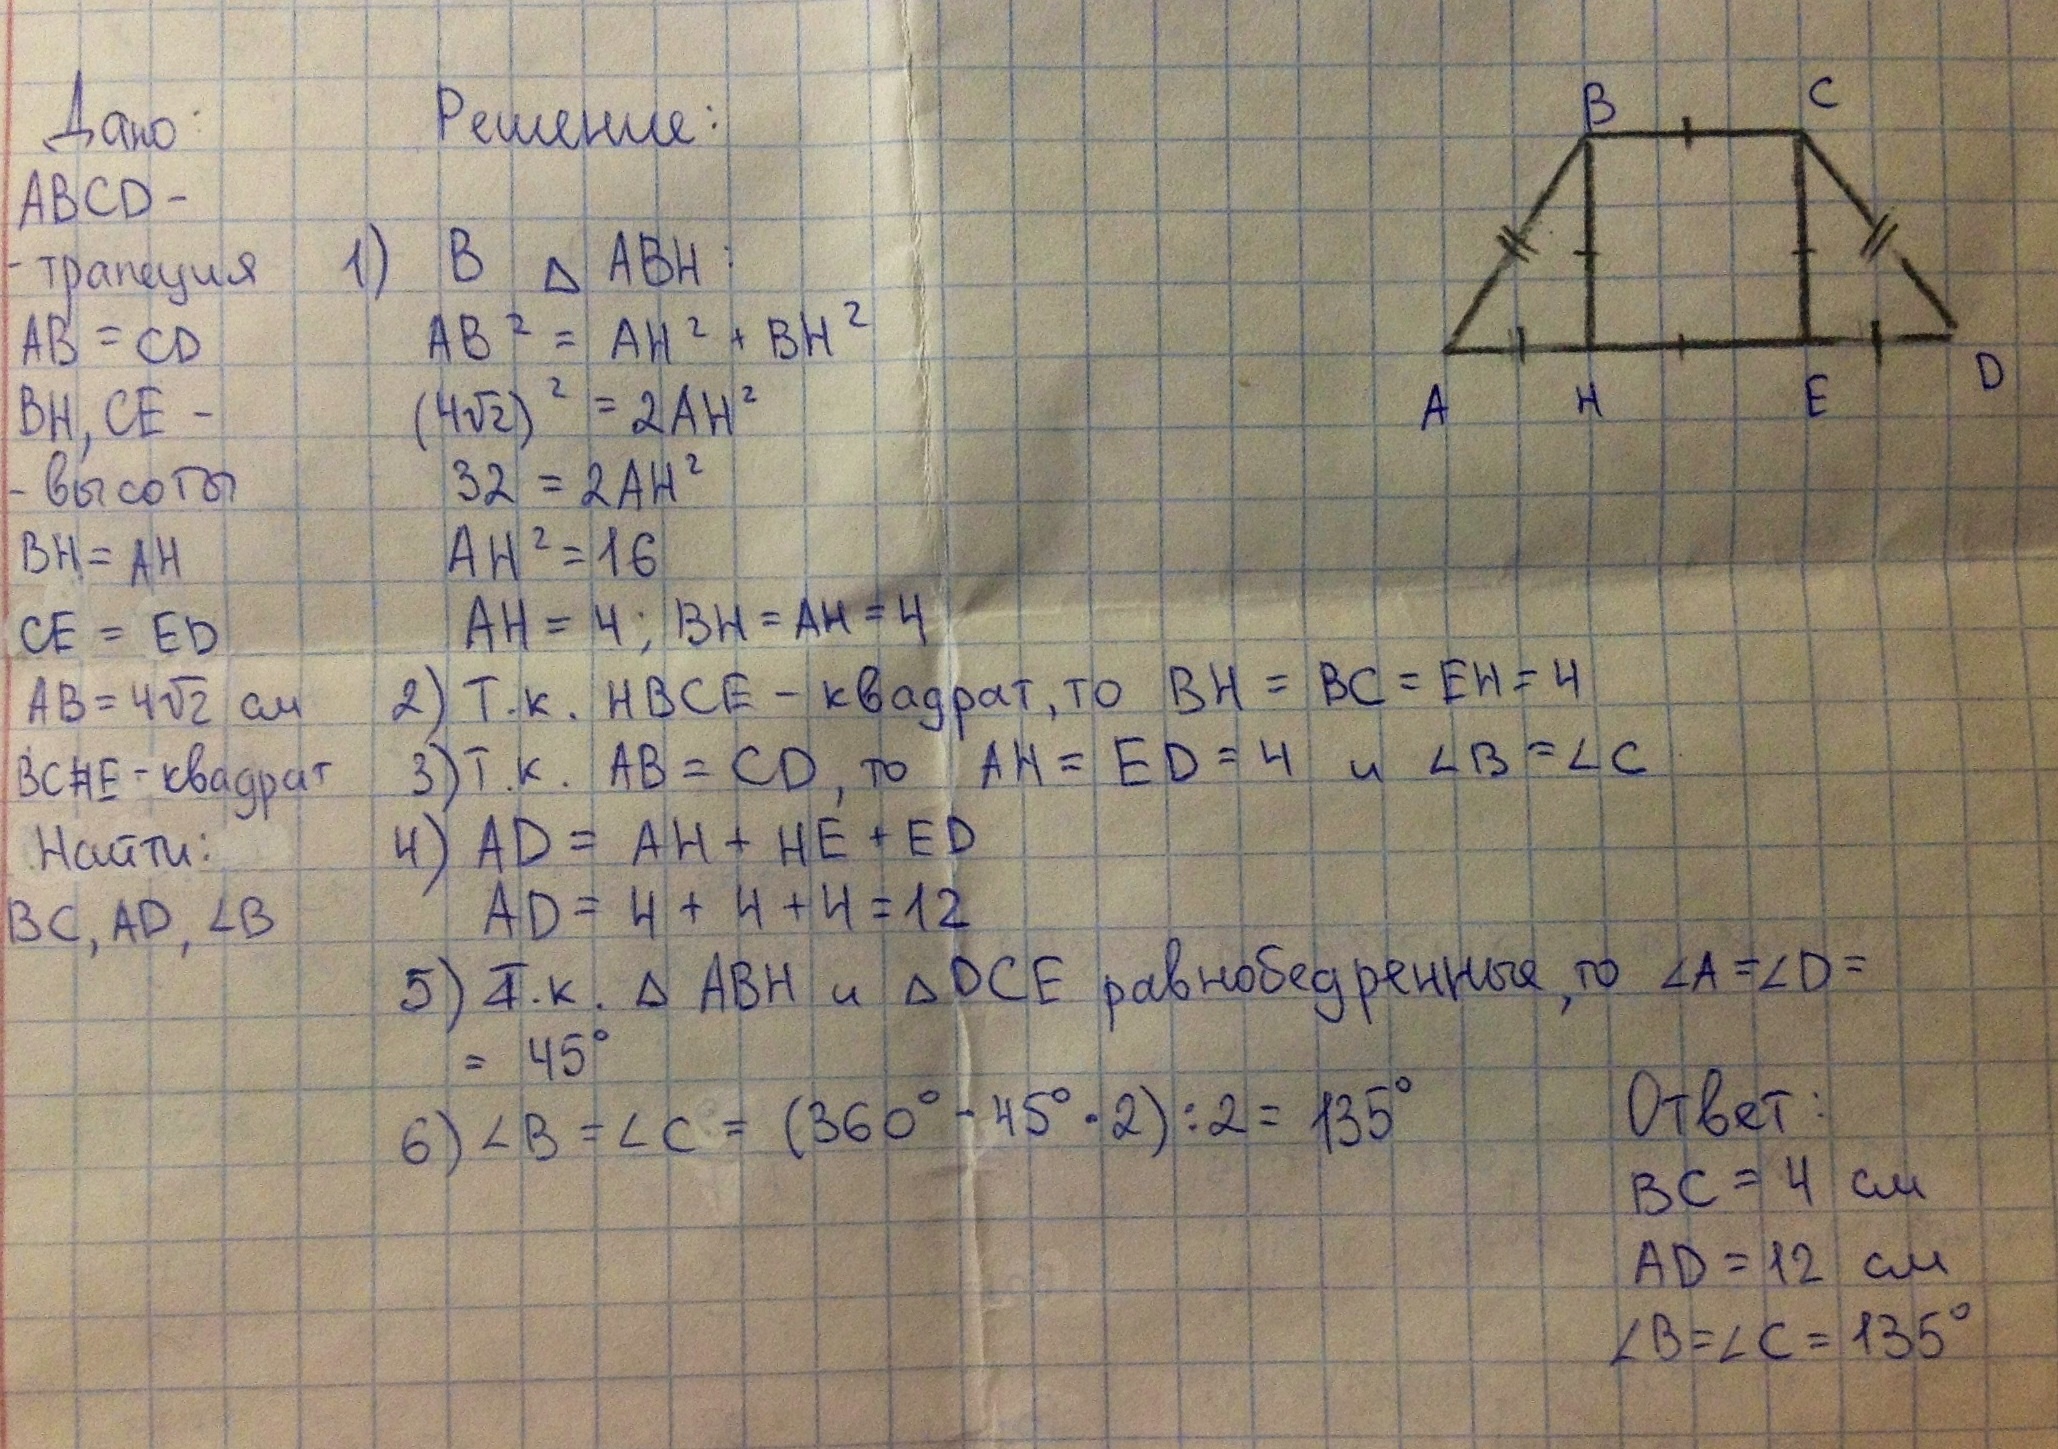 Дано:
ABCD -
- трапеция
AB = CD
BH, CE -
- высоты
BH = AH
CE = ED
AB = 4√2 см
BCHE - квадрат
Найти:
BC, AD, ∠B
Решение:
1) В △ ABH:
AB² = AH² + BH²
(4√2)² = 2AH²
32 = 2AH²
AH² = 16
AH = 4; BH = AH = 4
2) Т.к. HBCE - квадрат, то BH = BC = EH = 4
3) Т.к. AB = CD, то AH = ED = 4 и ∠B = ∠C
4) AD = AH + HE + ED
AD = 4 + 4 + 4 = 12
5) Т.к. △ ABH и △ DCE равнобедренные, то ∠A = ∠D =
= 45°
6) ∠B = ∠C = (360° - 45° · 2) : 2 = 135°
Ответ:
BC = 4 см
AD = 12 см
∠B = ∠C = 135°
B C
A H E D